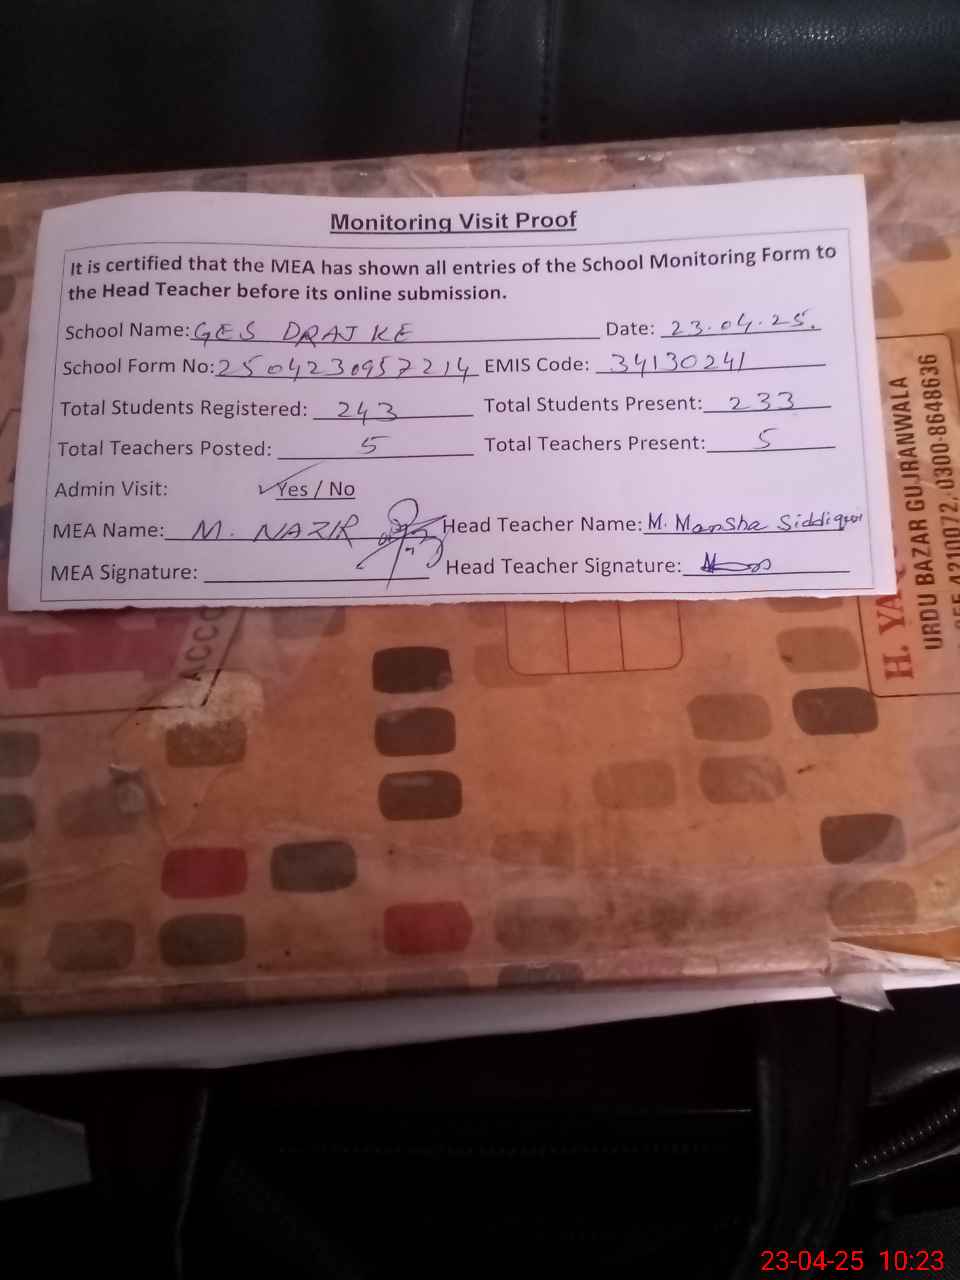 Monitoring Visit Proof
It is certified that the MEA has shown all entries of the School Monitoring Form to
the Head Teacher before its online submission.
School Name: GES DRAJKE Date: 23.04.25.
School Form No: 250423095 7214 EMIS Code: 34130241
Total Students Registered: 243 Total Students Present: 233
Total Teachers Posted: 5 Total Teachers Present: 5
Admin Visit: ✓Yes / No
MEA Name: M. NAZIR Head Teacher Name: M. Mansha Siddiqui
MEA Signature: Head Teacher Signature:
ACCO
H. YA
URDU BAZAR GUJRANWALA
055-4210072, 0300-8648636
23-04-25 10:23